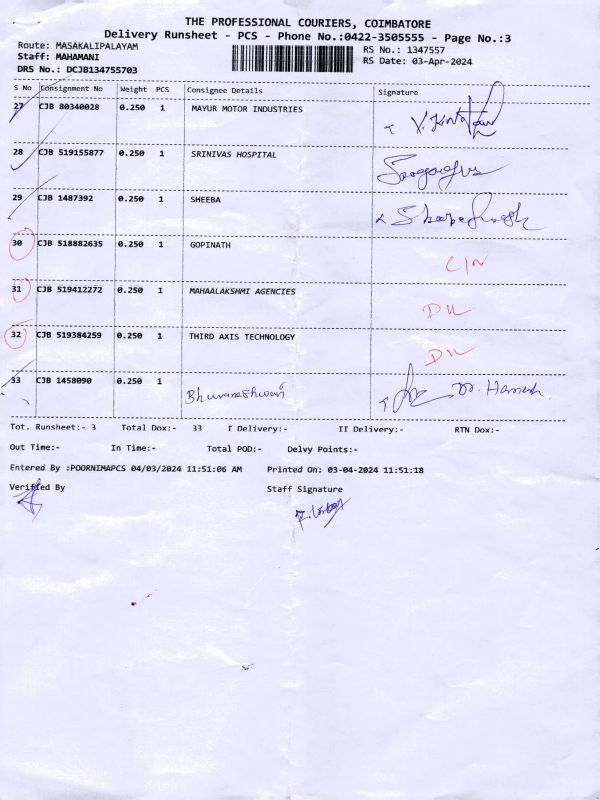 THE PROFESSIONAL COURIERS, COIMBATORE
Delivery Runsheet - PCS - Phone No.:0422-3505555 - Page No.:3
Route: MASAKALIPALAYAM RS No.: 1347557
Staff: MAHAMANI RS Date: 03-Apr-2024
DRS No.: DCJB134755703
S No Consignment No Weight PCS Consignee Details Signature
27 CJB 80340028 0.250 1 MAYUR MOTOR INDUSTRIES
28 CJB 519155877 0.250 1 SRINIVAS HOSPITAL
29 CJB 1487392 0.250 1 SHEEBA
30 CJB 518882635 0.250 1 GOPINATH
31 CJB 519412272 0.250 1 MAHAALAKSHMI AGENCIES
32 CJB 519384259 0.250 1 THIRD AXIS TECHNOLOGY
33 CJB 1458090 0.250 1 Bhuvaneshwari
Tot. Runsheet:- 3 Total Dox:- 33 I Delivery:- II Delivery:- RTN Dox:-
Out Time:- In Time:- Total POD:- Delvy Points:-
Entered By :POORNIMAPCS 04/03/2024 11:51:06 AM Printed On: 03-04-2024 11:51:18
Verified By Staff Signature